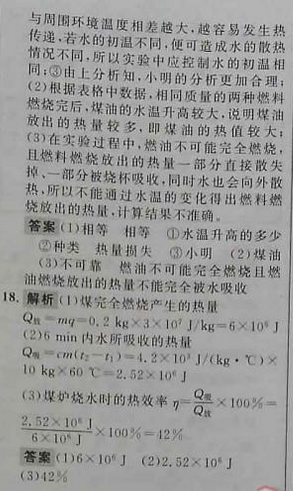 与周围环境温度相差越大,越容易发生热
传递,若水的初温不同,便可造成水的散热
情况不同,所以实验中应控制水的初温相
同;③由上分析知,小明的分析更加合理;
(2)根据表格中数据,相同质量的两种燃料
燃烧完后,煤油的水温升高较大,说明煤油
放出的热量较多,即煤油的热值较大;
(3)在实验过程中,燃油不可能完全燃烧,
且燃料燃烧放出的热量一部分直接散失
掉,一部分被烧杯吸收,同时水也会向外散
热,所以不能通过水温的变化得出燃料燃
烧放出的热量,计算结果不准确。
答案 (1)相等 相等 ①水温升高的多少
②种类 热量损失 ③小明 (2)煤油
(3)不可靠 燃油不可能完全燃烧且燃
油燃烧放出的热量不能完全被水吸收
18. 解析 (1)煤完全燃烧产生的热量
Q放=mq=0.2 kg×3×10⁷ J/kg=6×10⁶ J
(2)6 min 内水所吸收的热量
Q吸=cm(t₂-t₁)=4.2×10³ J/(kg·℃)×
10 kg×60 ℃=2.52×10⁶ J
(3)煤炉烧水时的热效率 η=Q吸/Q放×100%=
2.52×10⁶ J/6×10⁶ J×100%=42%
答案 (1)6×10⁶ J (2)2.52×10⁶ J
(3)42%